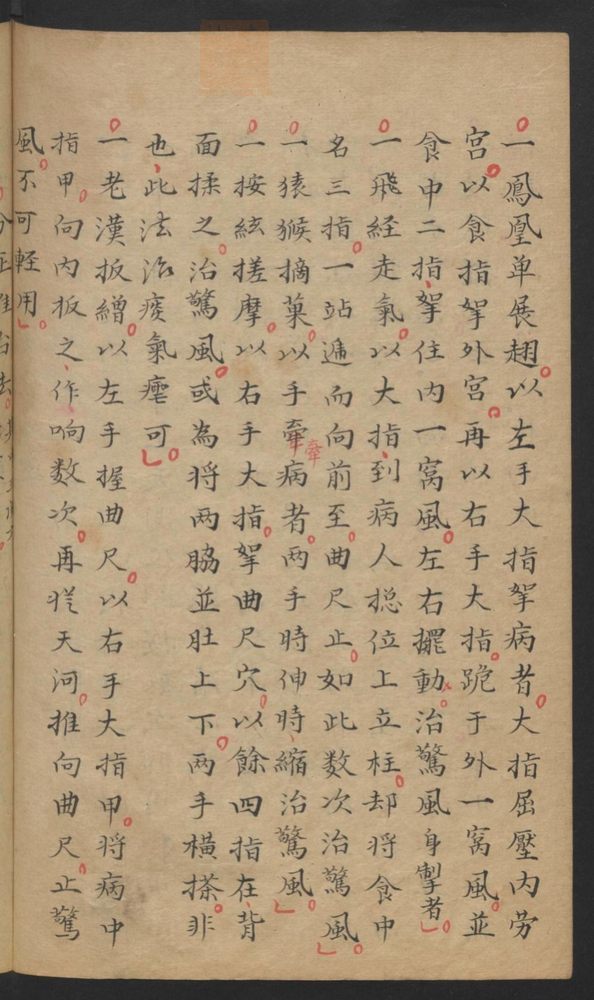 一鳳凰单展翅以左手大指拏病者大指屈壓内劳
宫以食指拏外宫再以右手大指跪于外一窝風並
食中二指拏住内一窝風左右擺動治驚風身掣者
一飛経走氣以大指到病人揔位上立柱却将食中
名三指一站逓而向前至曲尺止如此数次治驚風
一猿猴摘菓以手牽病者两手時伸時縮治驚風
牽
一按絃搓摩以右手大指拏曲尺穴以餘四指在背
面揉之治驚風或為将两脇並肚上下两手横搽非
也此法治痰氣壅可
一老漢扳繒以左手握曲尺以右手大指甲将病中
指甲向内扳之作响数次再从天河推向曲尺止驚
風不可軽用